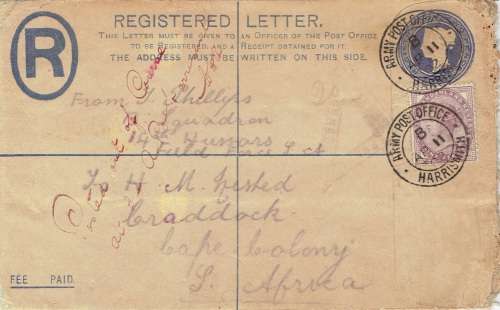 REGISTERED LETTER.
THIS LETTER MUST BE GIVEN TO AN OFFICER OF THE POST OFFICE
TO BE REGISTERED, AND A RECEIPT OBTAINED FOR IT.
THE ADDRESS MUST BE WRITTEN ON THIS SIDE.
R
ARMY POST OFFICE
B
11
HARRIS
ARMY POST OFFICE
B
11
HARRISMITH
From Phillips
Squadron
14th Hussars
Field S. A
Posted out of Course
To H. M. Hested
Craddock
Cape Colony
S. Africa
FEE PAID.